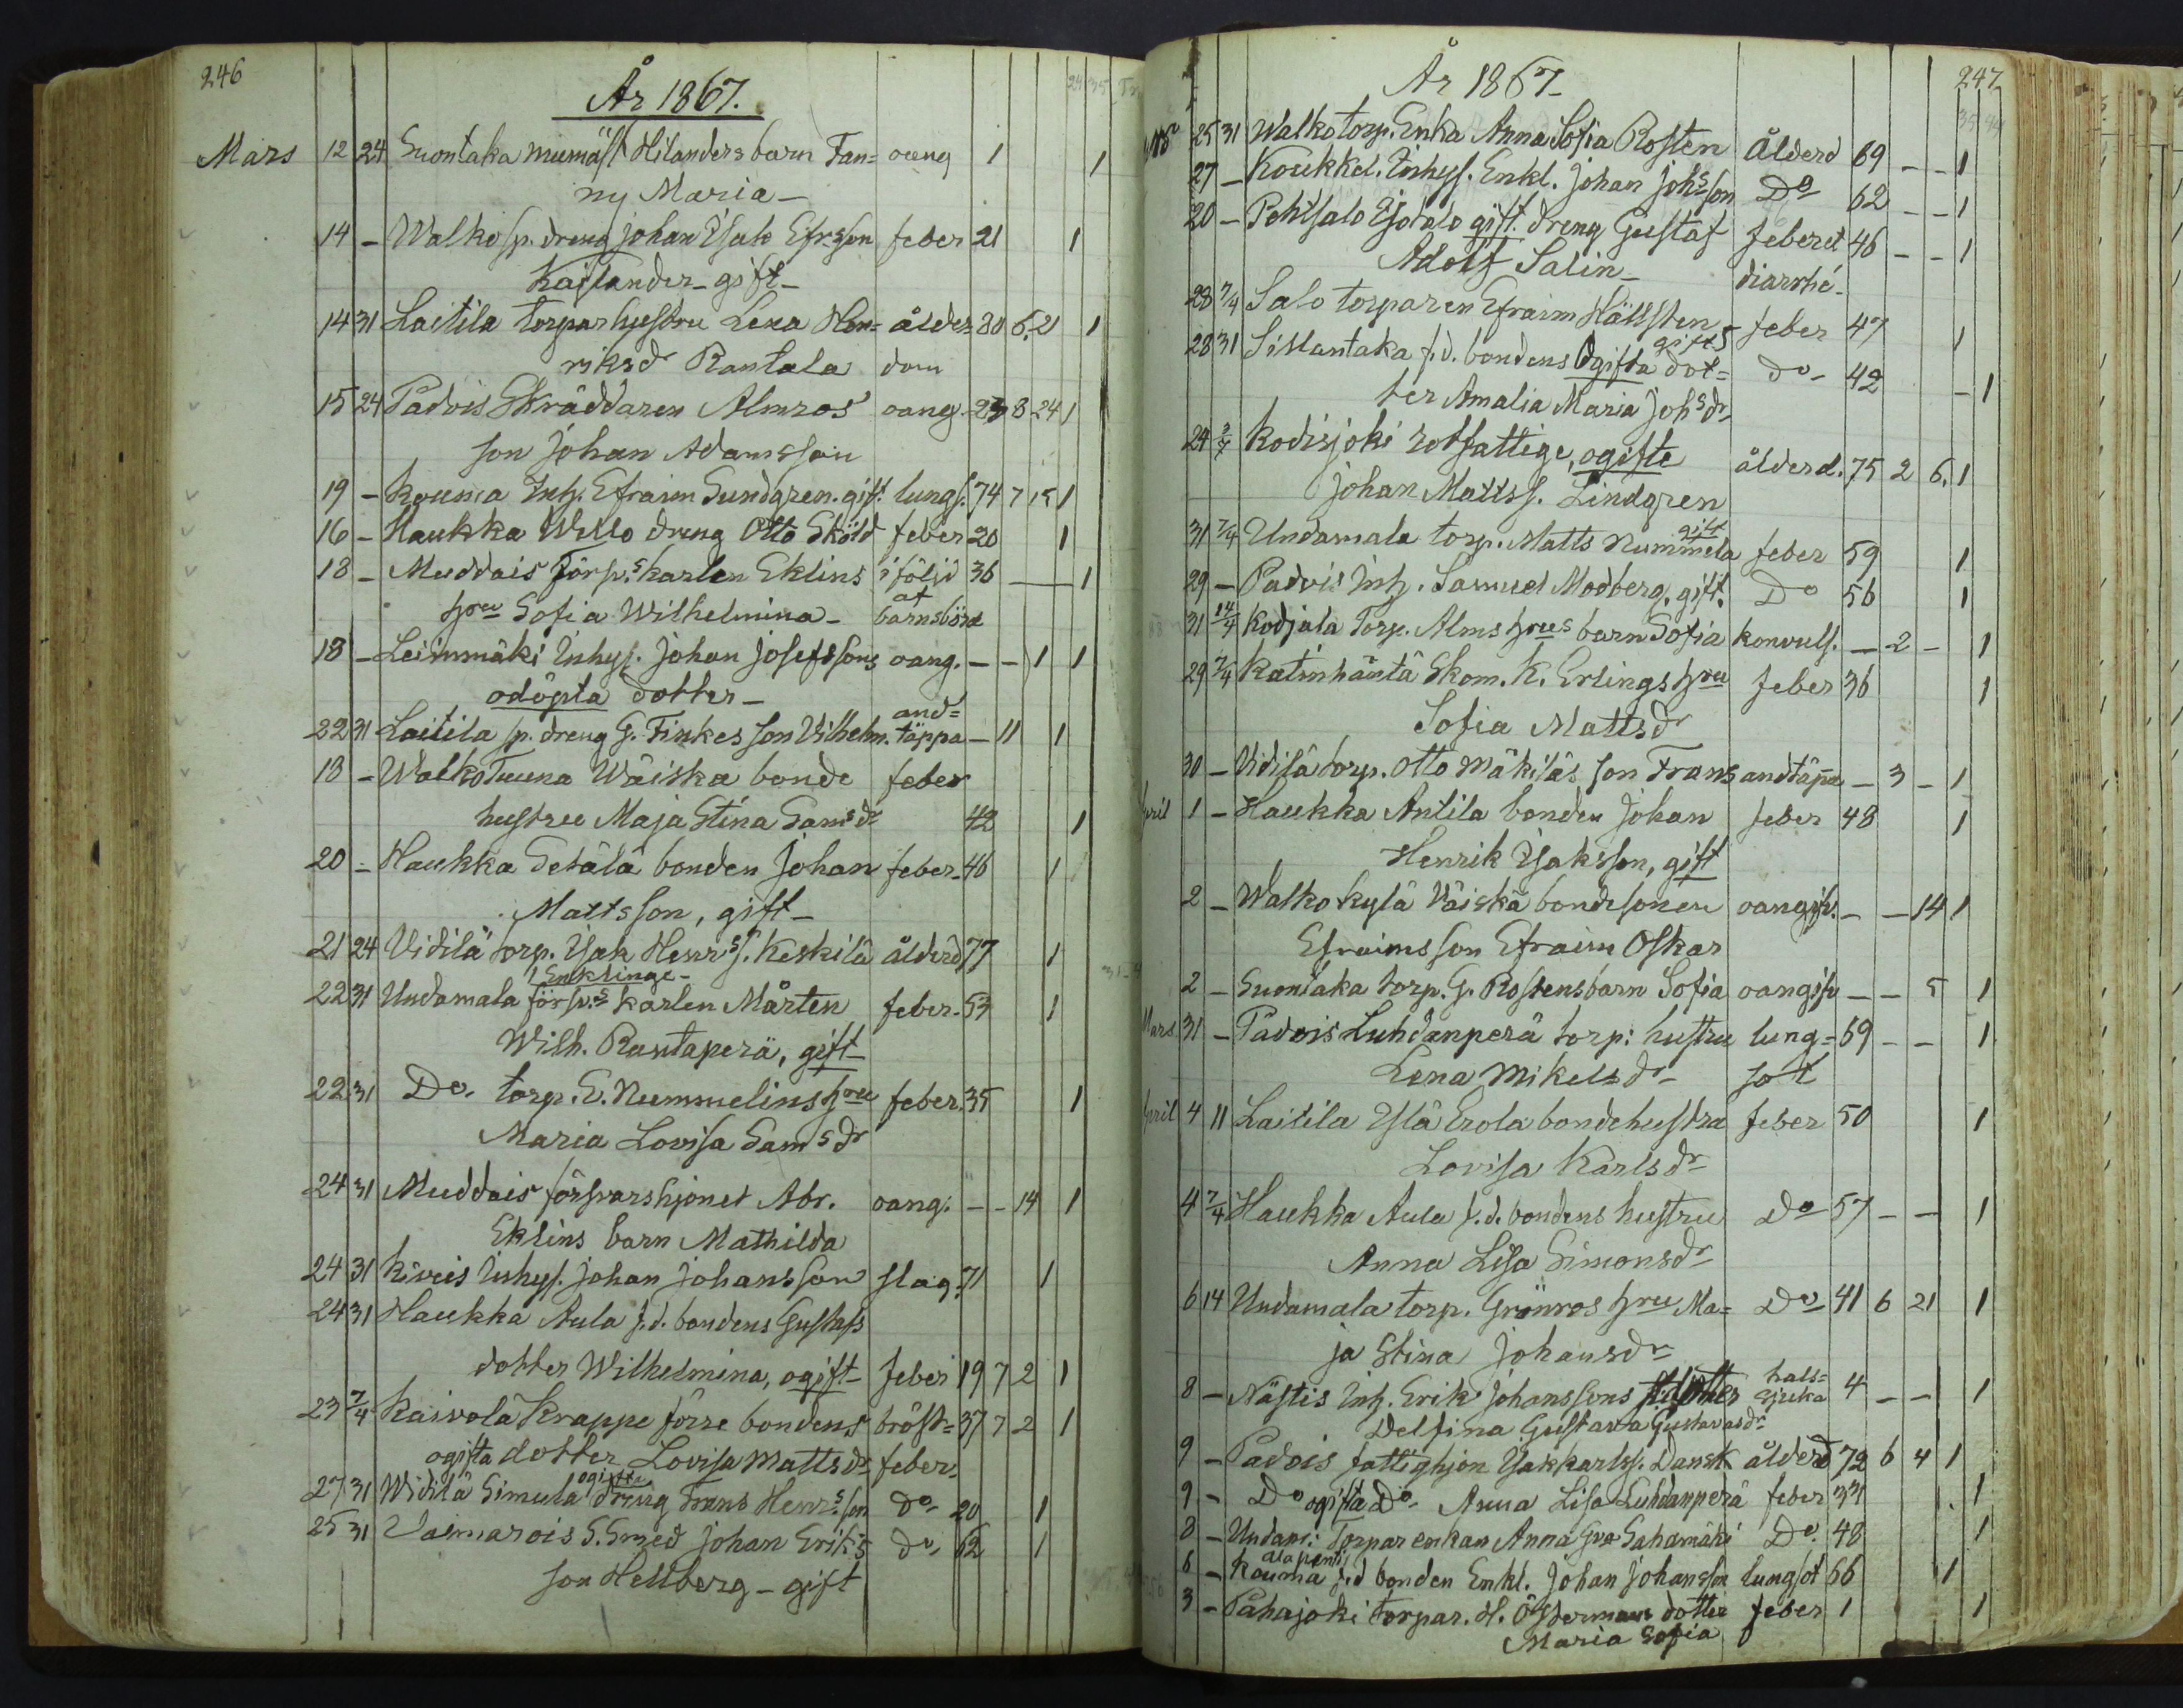 246
År 1867.
Mars 12 24 Suontaka mumäst Hilanders barn Fan= oang 1 1
ny Maria –
14 – Walko sp. dreng Johan Isak Efr:son feber 21 1
Kajlander – gift –
14 31 Laitila torparhustru Lena Hen= ålder 80 6 21 1
riksdr Rantala dom
15 24 Padvis Skräddaren Almros oang. 23 8 24 1
son Johan Adamsson
19 – Kouma Inh. Efraim Sundgren. gift. lungs. 74 7 15 1
16 – Haukka Wello dreng Otto Sköld feber 20 1
18 – Muddais Försp.s karlen Eklins i följd 36 – 1
hru Sofia Wilhelmina – af barnsbörd
18 – Leinmäki Inhys. Johan Josefssons oang. – – 1 1
odöpta dotter –
22 31 Laitila sp. dreng G. Finkes son Vilhelm. and= täppa – 11 1
18 – Walko Tuuna Wäiska bonde feber
hustru Maja Stina Samsdr 42 1
20 – Haukka Setälä bonden Johan feber 46 1
Mattsson, gift –
21 24 Vidilä torp. Isak Henrs s. Keskilä ålderd 77 1
Enklinge –
22 31 Undamala försv.s karlen Mårten feber. 53 1
Wilh. Rantaperä, gift –
22 31 Do. torp. E. Nummelins hru feber. 35 1
Maria Lovisa Samsdr
24 31 Muddais försvarshjonet Abr. oang. – – 14 1
Eklins barn Mathilda
24 31 Kiveis Inhys. Johan Johansson slag. 71 1
24 31 Haukka Aula f.d. bondens Gustafs
dotter Wilhelmina, ogift – feber 19 7 2 1
23 7/4 Kaivola Krappe förre bondens bröst= 37 7 2 1
ogifta dotter Lovisa Mattsdr feber.
27 31 Widilä Simula ogifta dreng Frans Henrs:son do – 20 1
25 31 Vaimarois S. Smed Johan Eriks do – 62 1
son Hellberg – gift
247
År 1867 –
25 31 Walko torp. Enka Anna Sofia Rosten Ålderd 69 – – 1
27 – Koukkel. Inhys. Enkl. Johan Johs:son Do 62 – – 1
20 – Pehtsalo Ejolalo gift. dreng Gustaf feber et 46 – – 1
Adolf Salin – diarrhé –
28 7/4 Salo torparen Efraim Hällsten – gift feber 47 1
28 31 Sillantaka f.d. bondens Ogifta dot= do – 42 – 1
ter Amalia Maria Johsdr
24 7/4 Kodisjoki rotfattige, ogifte ålderd. 75 2 6. 1
Johan Matts s. Lindgren
31 7/4 Undamala torp. Matts Nummela gift feber 59 1
29 – Padvis Inh. Samuel Modberg, gift. Do 56 1
31 14/4 Kodjala Torp. Alms hrus barn Sofia konvuls. – 2 – 1
29 7/4 Katinhäntä Skom. K. Erlings hru feber 36 1
Sofia Mattsdr
30 – Vidilä torp. Otto Mäkiläs son Frans andtäpa – 3 – 1
April 1 – Haukka Antila bonden Johan feber 48 1
Henrik Isaksson, gift
2 – Walko kylä Väiskä bondesonen oangifv. – – 14 1
Efraimsson Efraim Oskar
2 – Suontaka torp. G. Rostens barn Sofia oangifv – – 5 1
Mars 31 – Padvis Luhdanperä torp: hustru lung= 69 – – 1
Lena Mikelsdr – sot
April 4 11 Laitila Ylä Erola bondehustru feber 50 1
Lovisa Karlsdr
4 7/4 Haukka Aula f.d. bondens hustru Do 57 – – 1
Anna Lisa Simonsdr
6 14 Undamala torp. Grönros hru Ma= Do – 41 6 21 1
ja Stina Johansdr
8 – Nästis Inh. Erik Johanssons hals= sjuka 4 – – 1
Delfina Gustava Gustavasdr
9 – Padvis fattighjon Isak Karls s. Dansk ålderd 72 6 4 1
9 – Do ogifta Do – Anna Lisa Luhdanperä feber 33 1
8 – Undam: Torparenkan Anna Gva Sahamäki Do. 48 1
6 – Kouma alapenti f.d bonden Enkl. Johan Johansson lungsot 66 1
3 – Pahajoki torpar. H. Östermans dotter feber 1 1
Maria Sofia